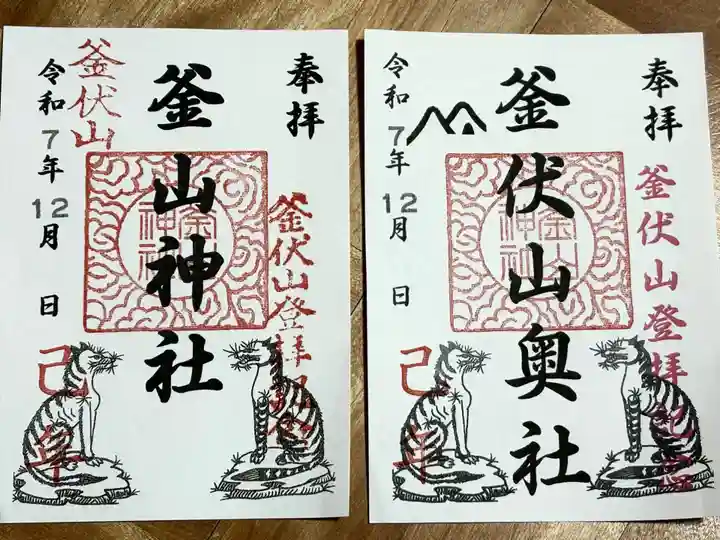 奉拝
釜山神社
釜伏山
令和7年12月 日
釜山神社
釜伏山登拝記念
己年
奉拝
釜伏山奥社
令和7年12月 日
釜山神社
釜伏山登拝記念
己年